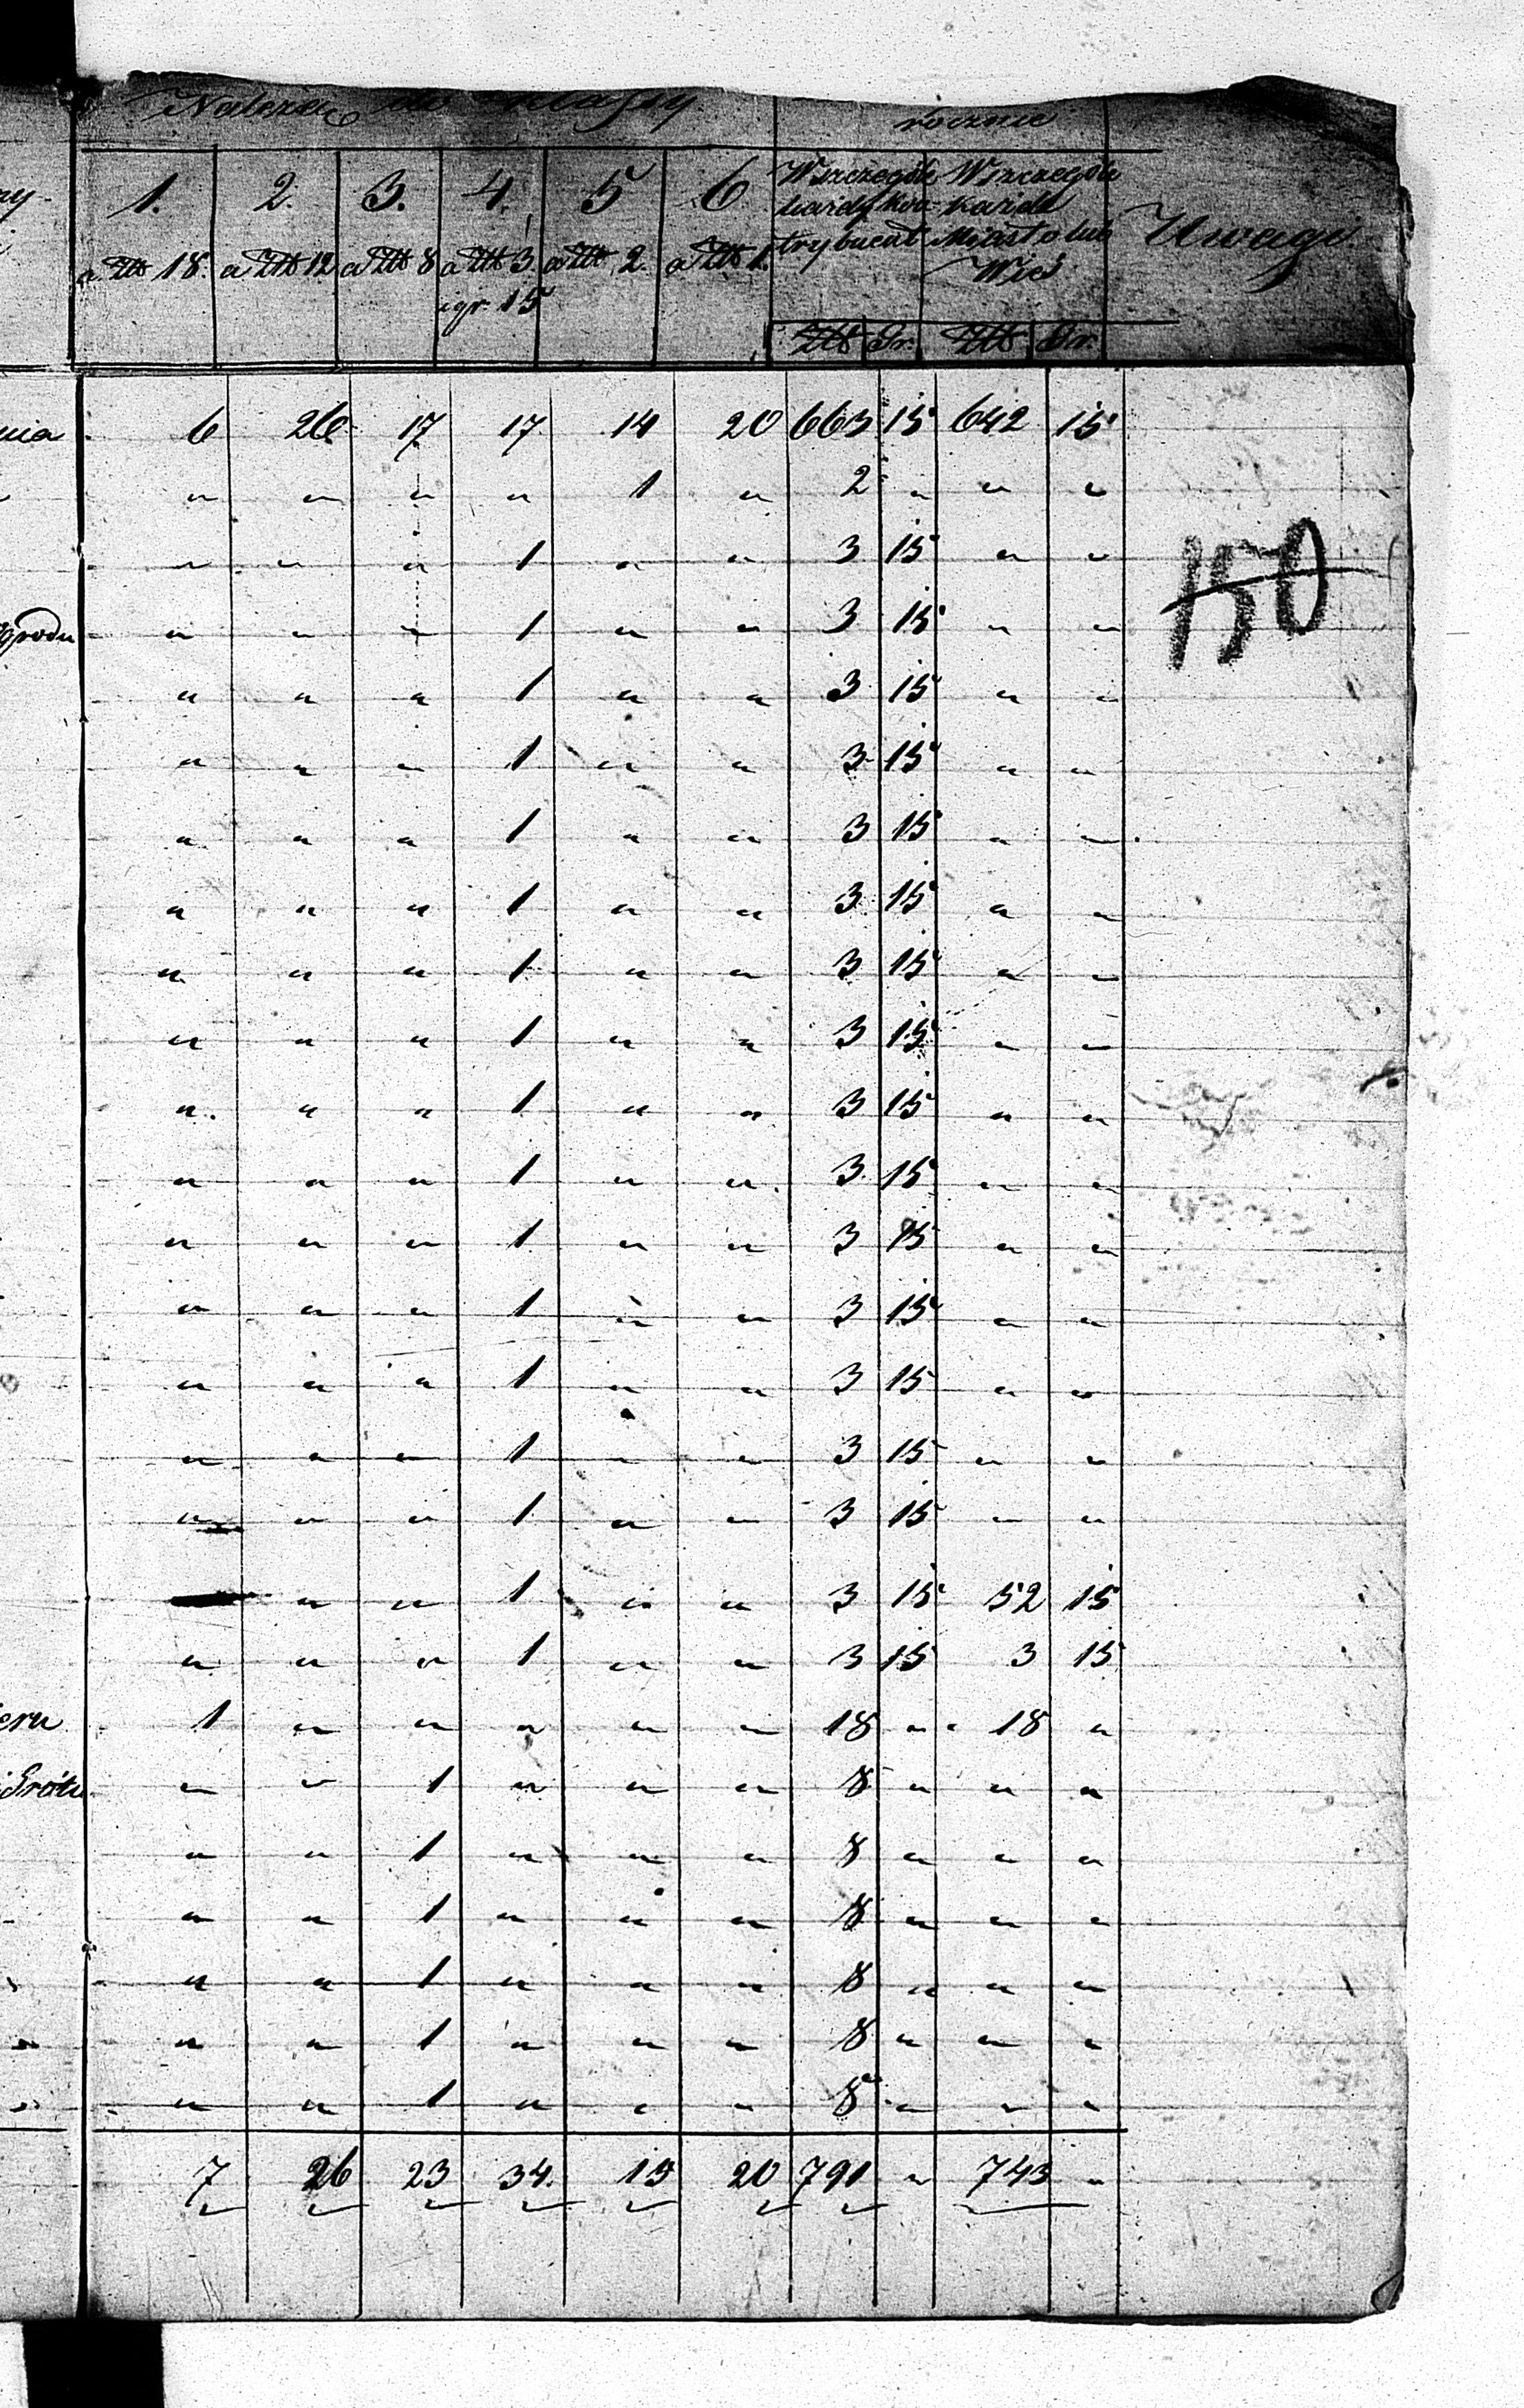 Należą do klassy
rocznie
1. 2. 3. 4. 5 6
a Złt 18. a Złt 12 a Złt 8 a Złt 3. i gr. 15 a Złt 2. a Złt 1.
Wszczególe każdy kontrybuent
Wszczególe każde Miasto lub Wieś
Uwagi.
Złt Gr. Złt Gr.
6 26 17 17 14 20 663 15 642 15
" " " " 1 " 2 " " "
" " " 1 " " 3 15 " "
" " " 1 " " 3 15 " "
150
" " " 1 " " 3 15 " "
" " " 1 " " 3 15 " "
" " " 1 " " 3 15 " "
" " " 1 " " 3 15 " "
" " " 1 " " 3 15 " "
" " " 1 " " 3 15 " "
" " " 1 " " 3 15 " "
" " " 1 " " 3 15 " "
" " " 1 " " 3 15 " "
" " " 1 " " 3 15 " "
" " " 1 " " 3 15 " "
" " " 1 " " 3 15 " "
" " " 1 " " 3 15 " "
" " 1 " " 3 15 52 15
" " " 1 " " 3 15 3 15
1 " " " " " 18 " 18 "
" " 1 " " " 8 " " "
" " 1 " " " 8 " " "
" " 1 " " " 8 " " "
" " 1 " " " 8 " " "
" " 1 " " " 8 " " "
" " 1 " " " 8 " " "
7 26 23 34. 15 20 791 " 743 "